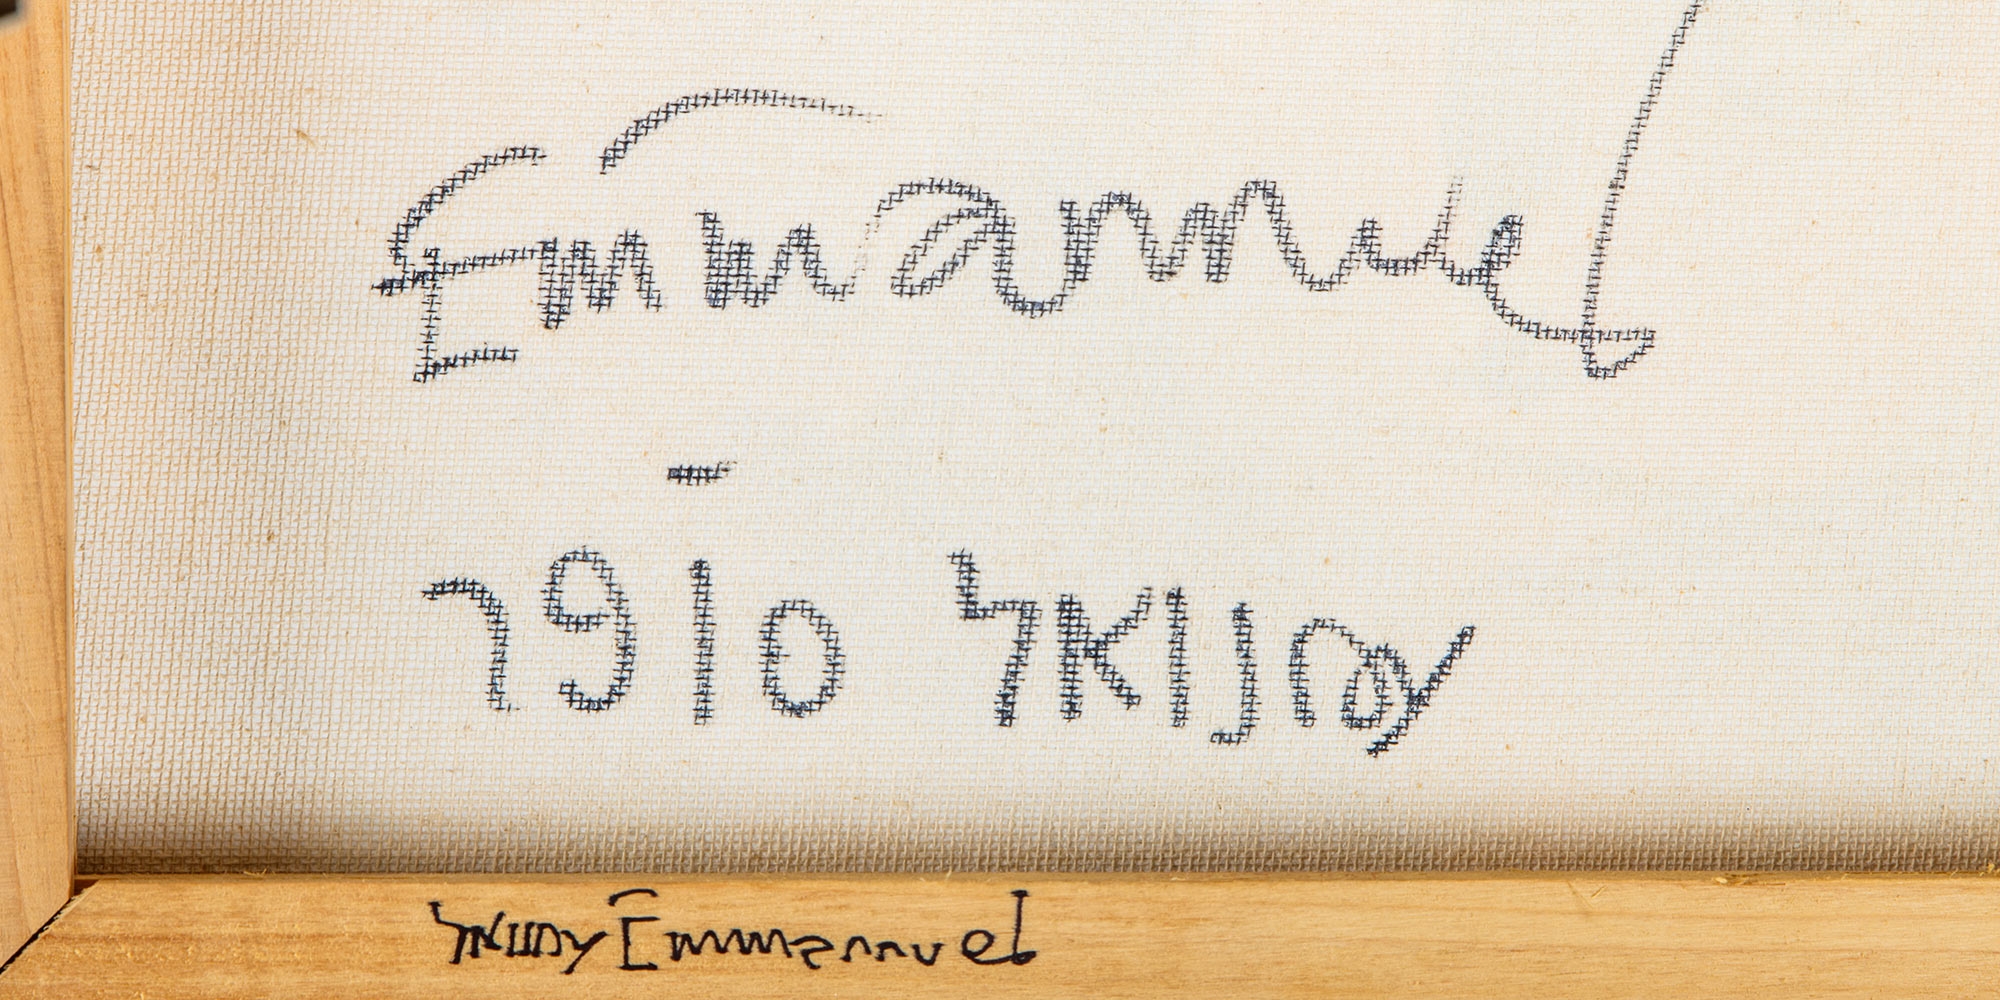 Emmanuel
עמנואל סופר
עמנואל Emmanuel